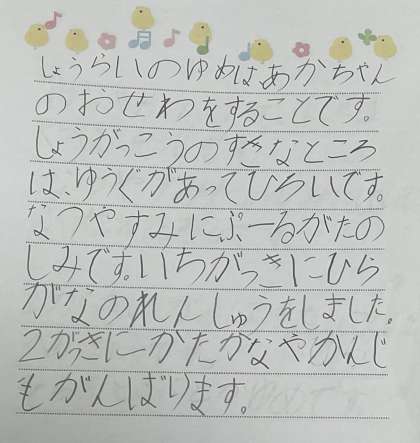 しょうらいのゆめはあかちゃん
のおせわをすることです。
しょうがっこうのすきなところ
は、ゆうぐがあってひろいです。
なつやすみにぷーるがたの
しみです。いちがっきにひら
がなのれんしゅうをしました。
2がっきにーかたかなやかんじ
もがんばります。